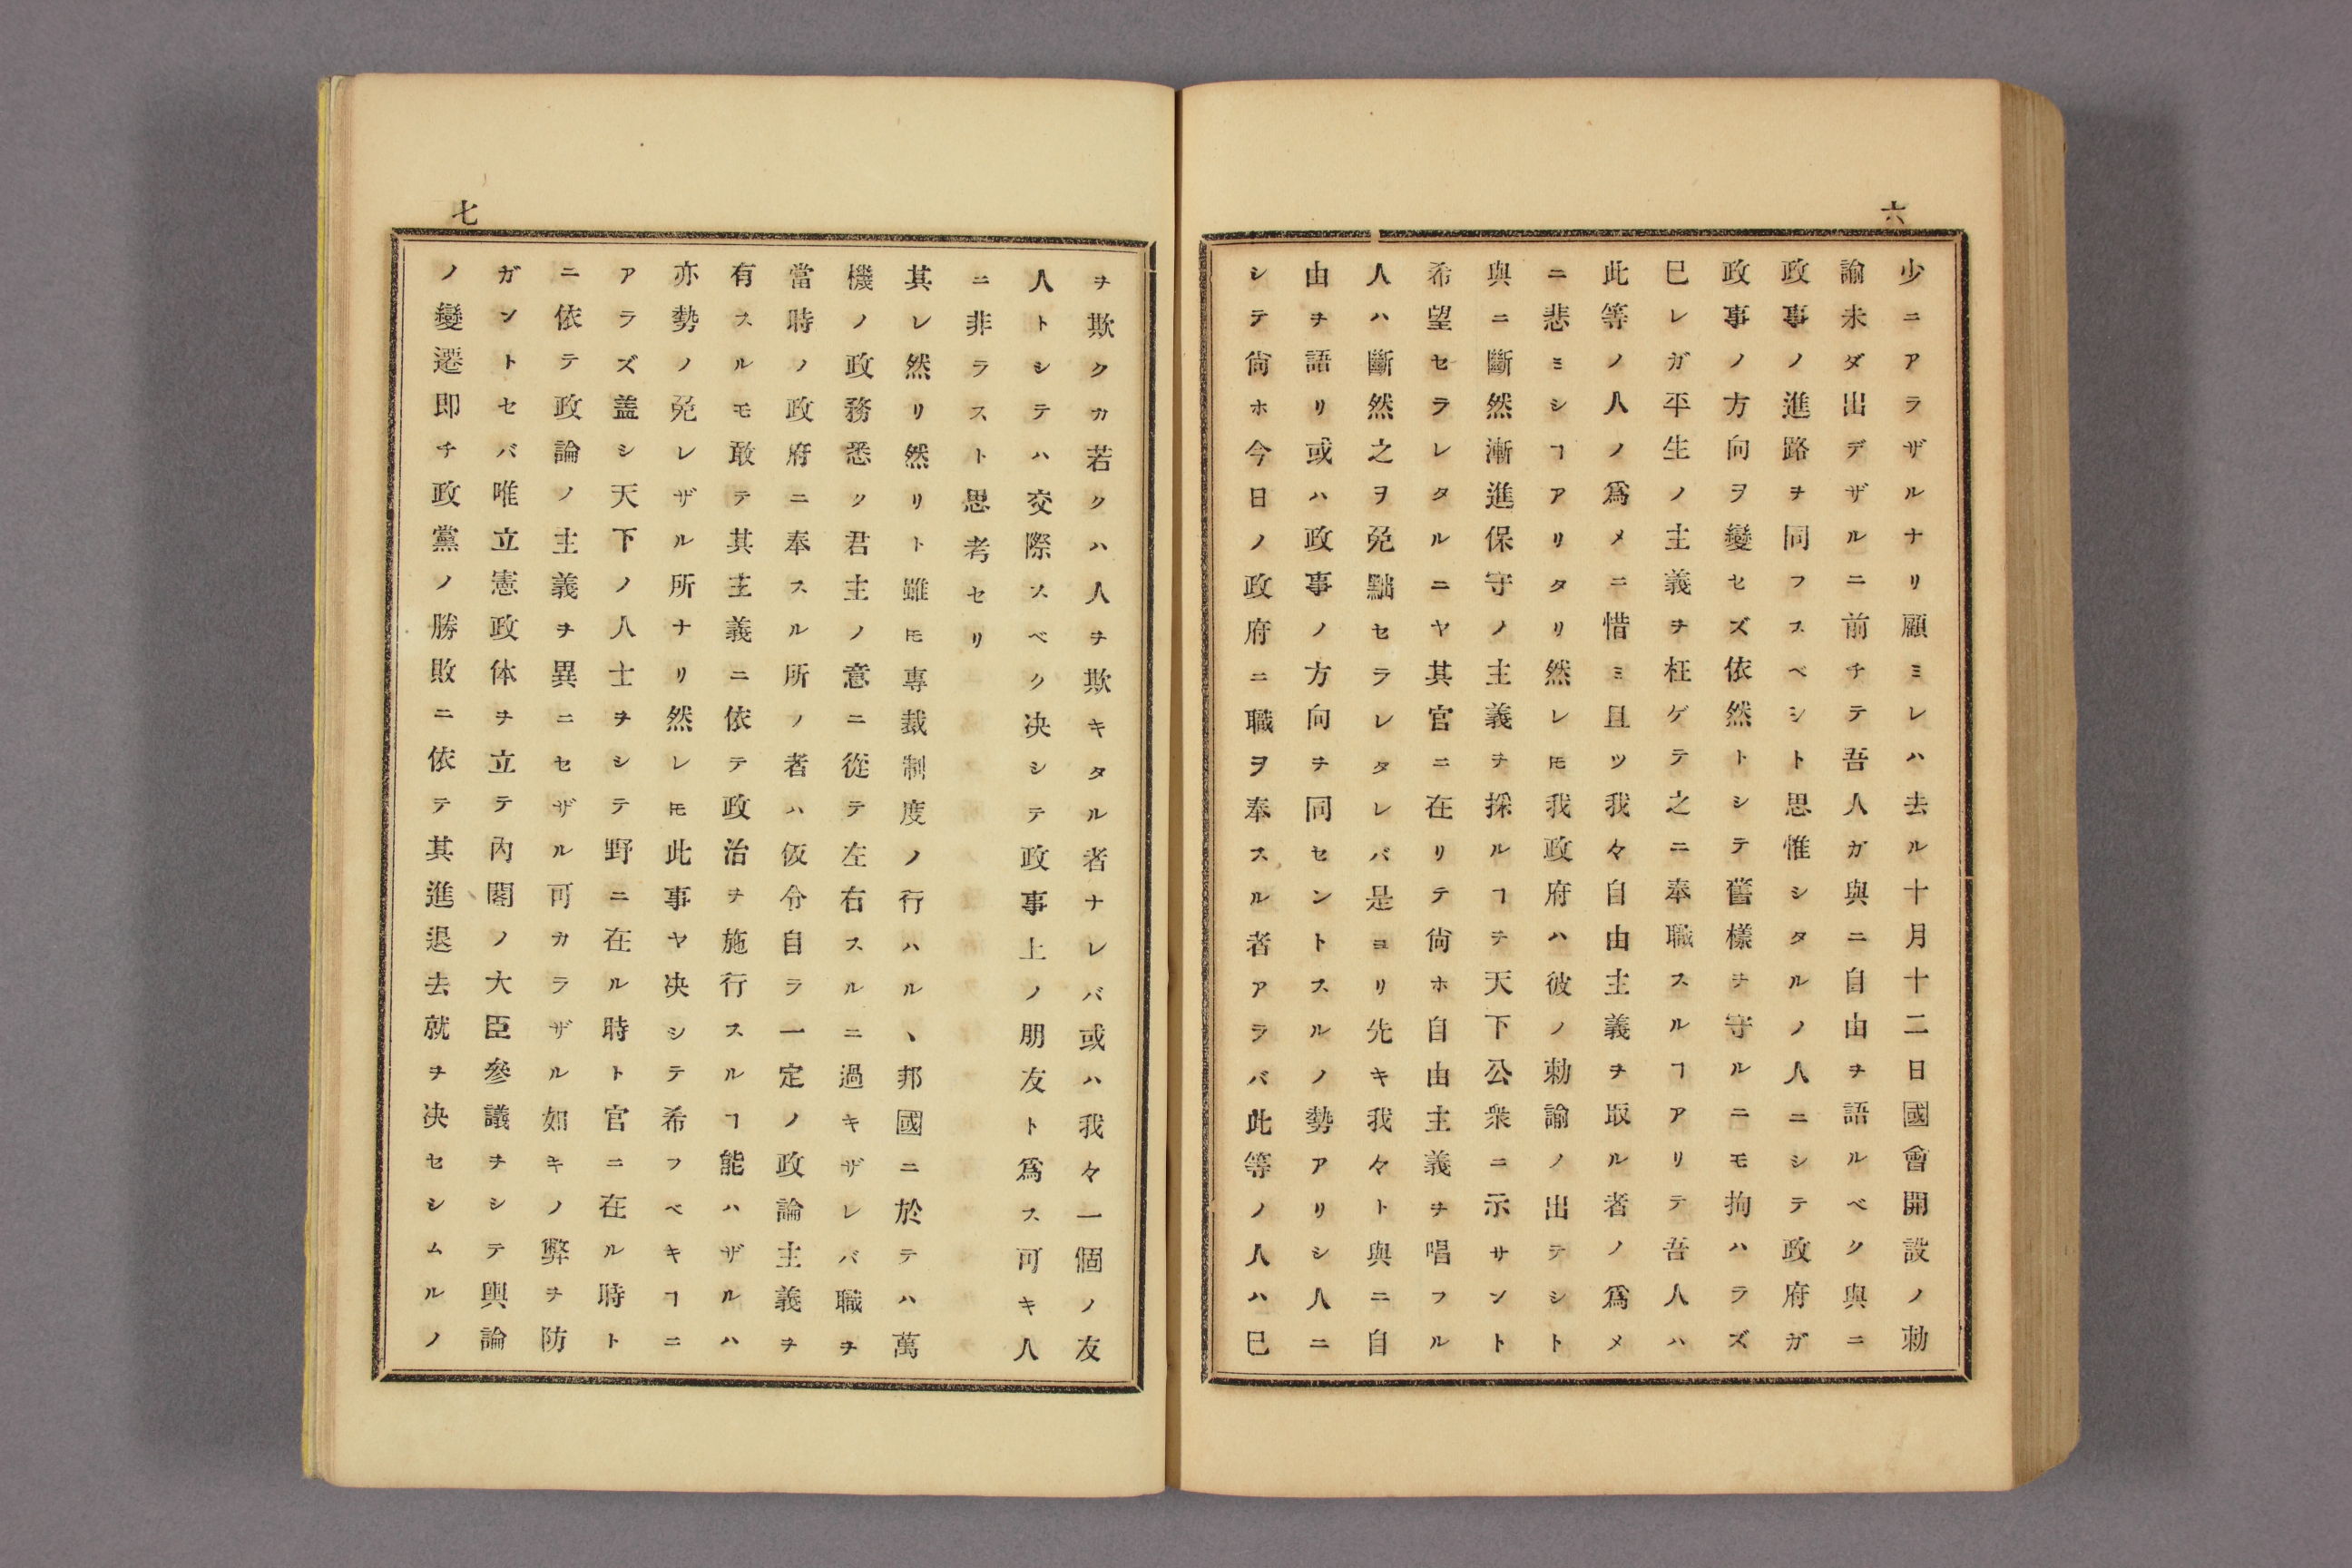 六
少ニアラザルナリ顧ミレハ去ル十月十二日國會開設ノ勅
諭未ダ出デザルニ前チテ吾人ガ與ニ自由ヲ語ルベク與ニ
政事ノ進路ヲ同フスベシト思惟シタルノ人ニシテ政府ガ
政事ノ方向ヲ變セズ依然トシテ舊樣ヲ守ルニモ拘ハラズ
巳レガ平生ノ主義ヲ枉ゲテ之ニ奉職スルヿアリテ吾人ハ
此等ノ人ノ爲メニ惜ミ且ツ我々自由主義ヲ取ル者ノ爲メ
ニ悲ミシヿアリタリ然レ𪜈我政府ハ彼ノ勅諭ノ出テシト
與ニ斷然漸進保守ノ主義ヲ採ルヿヲ天下公衆ニ示サント
希望セラレタルニヤ其官ニ在リテ尙ホ自由主義ヲ唱フル
人ハ斷然之ヲ免黜セラレタレバ是ヨリ先キ我々ト與ニ自
由ヲ語リ或ハ政事ノ方向ヲ同セントスルノ勢アリシ人ニ
シテ尙ホ今日ノ政府ニ職ヲ奉スル者アラバ此等ノ人ハ巳
七
ヲ欺クカ若クハ人ヲ欺キタル者ナレバ或ハ我々一個ノ友
人トシテハ交際スベク决シテ政事上ノ朋友ト爲ス可キ人
ニ非ラスト思考セリ
其レ然リ然リト雖𪜈專裁制度ノ行ハルヽ邦國ニ於テハ萬
機ノ政務悉ク君主ノ意ニ從テ左右スルニ過キザレバ職ヲ
當時ノ政府ニ奉スル所ノ者ハ仮令自ラ一定ノ政論主義ヲ
有スルモ敢テ其主義ニ依テ政治ヲ施行スルヿ能ハザルハ
亦勢ノ免レザル所ナリ然レ𪜈此事ヤ决シテ希フベキヿニ
アラズ盖シ天下ノ人士ヲシテ野ニ在ル時ト官ニ在ル時ト
ニ依テ政論ノ主義ヲ異ニセザル可カラザル如キノ弊ヲ防
ガントセバ唯立憲政体ヲ立テ內閣ノ大臣參議ヲシテ輿論
ノ變遷即チ政黨ノ勝敗ニ依テ其進退去就ヲ决セシムルノ